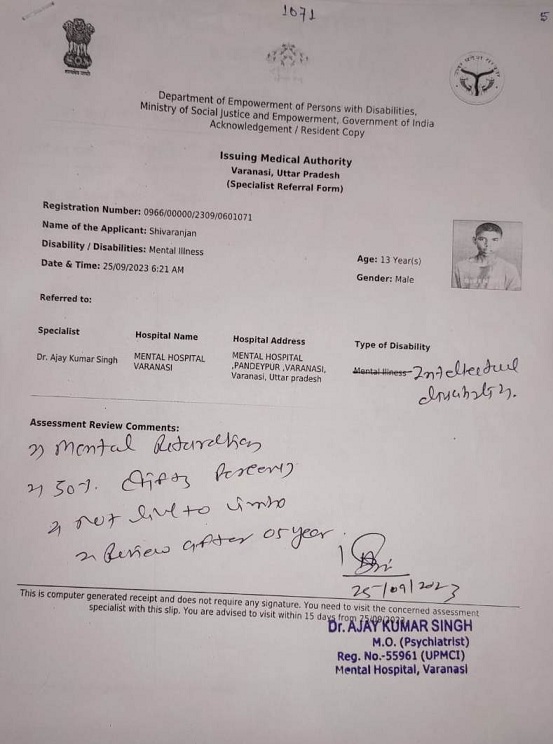 1071
5
Department of Empowerment of Persons with Disabilities,
Ministry of Social Justice and Empowerment, Government of India
Acknowledgement / Resident Copy
Issuing Medical Authority
Varanasi, Uttar Pradesh
(Specialist Referral Form)
Registration Number: 0966/00000/2309/0601071
Name of the Applicant: Shivaranjan
Disability / Disabilities: Mental Illness
Date & Time: 25/09/2023 6:21 AM
Age: 13 Year(s)
Gender: Male
Referred to:
Specialist Hospital Name Hospital Address Type of Disability
Dr. Ajay Kumar Singh MENTAL HOSPITAL VARANASI MENTAL HOSPITAL ,PANDEYPUR ,VARANASI, Varanasi, Uttar pradesh Mental Illness Intellectual
disability.
Assessment Review Comments:
Mental Retardation
50%
not
Review after 05 year
25/09/2023
This is computer generated receipt and does not require any signature. You need to visit the concerned assessment
specialist with this slip. You are advised to visit within 15 days from 25/09/2023
Dr. AJAY KUMAR SINGH
M.O. (Psychiatrist)
Reg. No.-55961 (UPMCI)
Mental Hospital, Varanasi